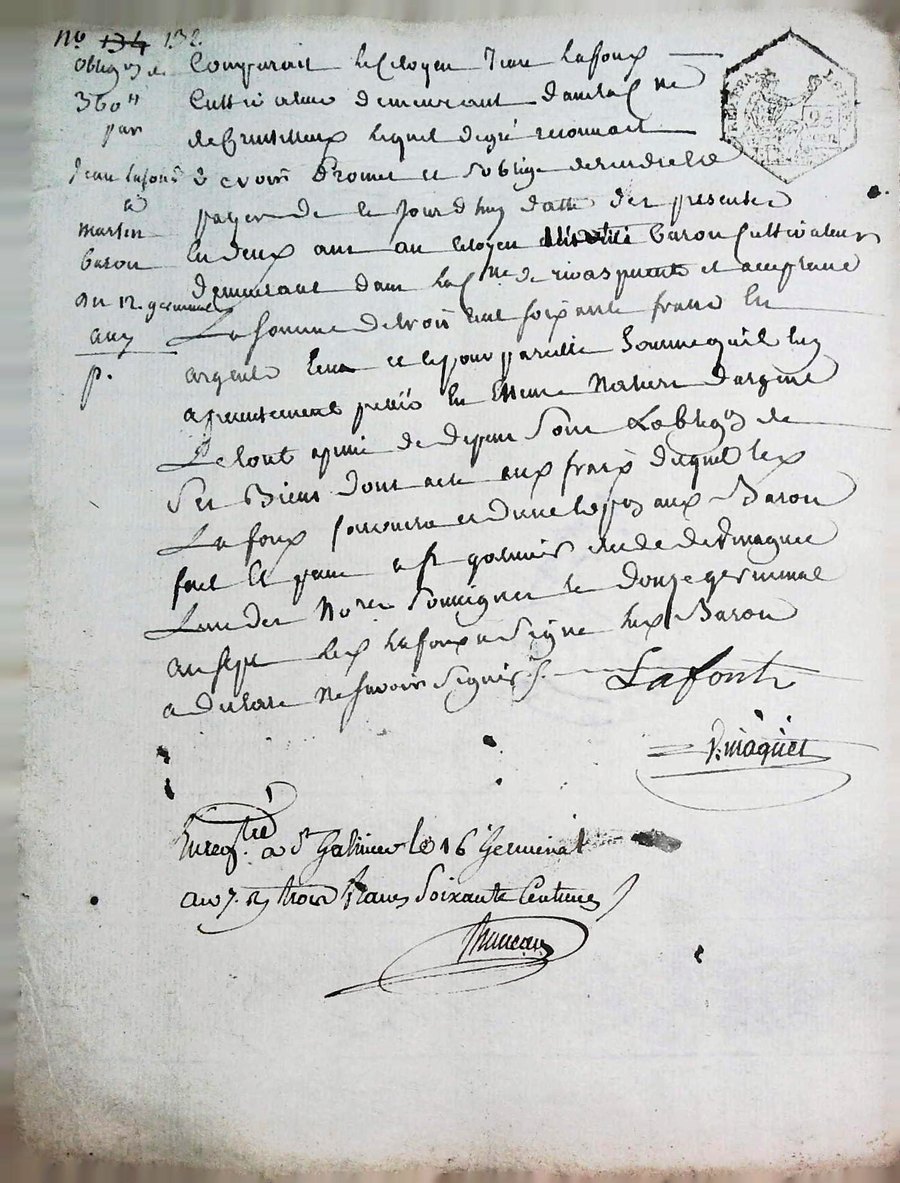 No 134 132
Oblig.on de
360 #
par
Jean Lafont
a
martin
baron
du 12 germinal
an 7
p.
Comparait le Citoyen Jean Lafoux
Cultivateur demeurant dans la C.ne
de lequel de gré reconnait
devoir promet et s'oblige de rendre et
payer de ce jour d'huy datte des presentes
En deux ans au Citoyen Baron Cultivateur
demeurant dans la C.ne de rivas present et acceptant
La somme de trois cent soixante francs En
argent et ce pour pareille somme quil luy
a presentement preté En meme Nature d'argent
Le tout a peine de depens sous L'oblig.on de
Ses Biens dont acte aux fraix duquel led.
Lafoux et dune aux Baron
fait et passé a st galmier
L'un des No.res Soussignés le douze germinal
an sept led. Lafoux a Signé led. Baron
a declaré Ne savoir Signer /.
Lafont
P. maguet
Enreg.tré a St Galmier le 16 Germinal
an 7. R. trois francs Soixante Centimes
REP. FRA.
LOIRE
25